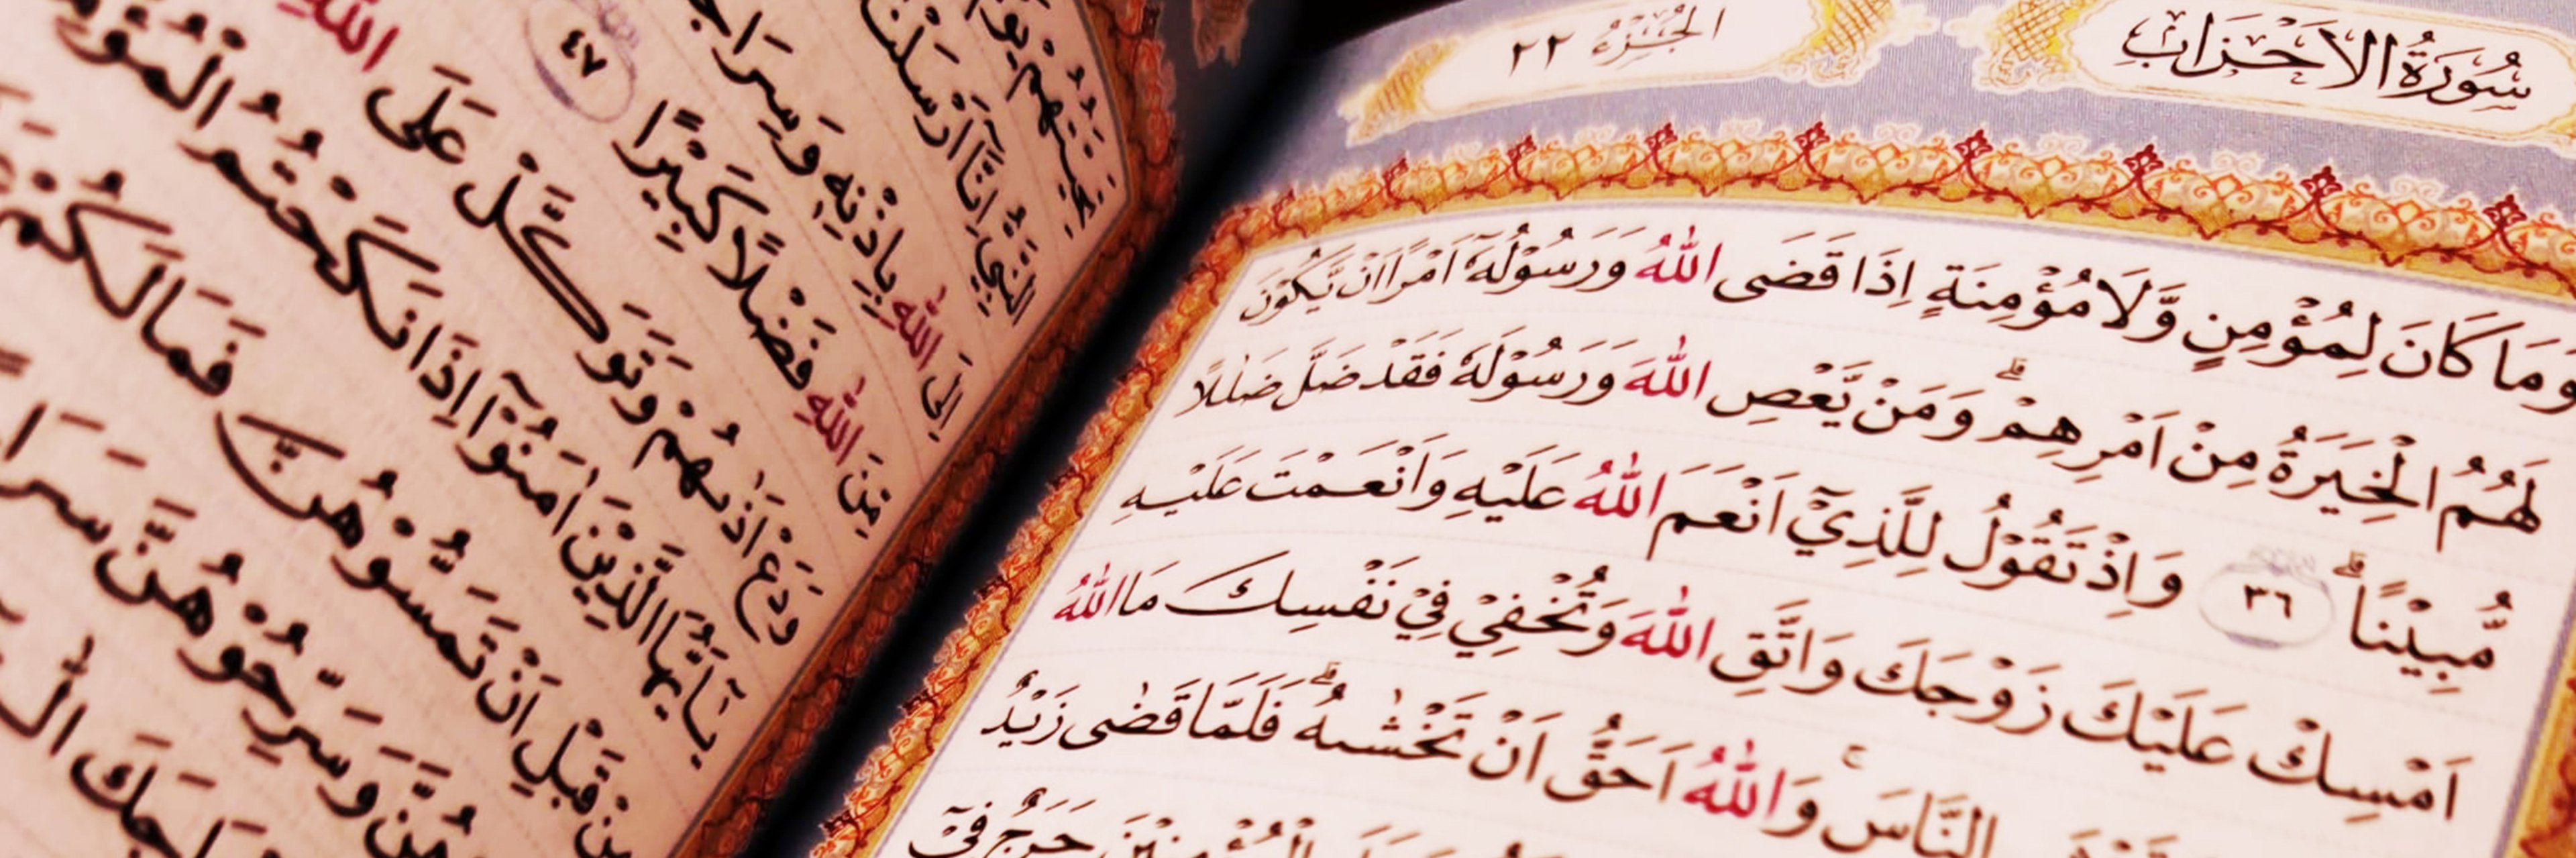 سُوْرَةُ الْاَحْزَابِ
الجُزْءُ ٢٢
وَمَا كَانَ لِمُؤْمِنٍ وَّلَا مُؤْمِنَةٍ اِذَا قَضَى اللّٰهُ وَرَسُوْلُهٗٓ اَمْرًا اَنْ يَّكُوْنَ
لَهُمُ الْخِيَرَةُ مِنْ اَمْرِهِمْ ۗوَمَنْ يَّعْصِ اللّٰهَ وَرَسُوْلَهٗ فَقَدْ ضَلَّ ضَلٰلًا
مُّبِيْنًاۗ ٣٦ وَاِذْ تَقُوْلُ لِلَّذِيْٓ اَنْعَمَ اللّٰهُ عَلَيْهِ وَاَنْعَمْتَ عَلَيْهِ
اَمْسِكْ عَلَيْكَ زَوْجَكَ وَاتَّقِ اللّٰهَ وَتُخْفِيْ فِيْ نَفْسِكَ مَا اللّٰهُ
النَّاسَۚ وَاللّٰهُ اَحَقُّ اَنْ تَخْشٰىهُ ۗ فَلَمَّا قَضٰى زَيْدٌ
الْمُؤْمِنِيْنَ حَرَجٌ فِيْٓ
النَّبِيُّ اِنَّآ اَرْسَلْنٰكَ
اِلَى اللّٰهِ بِاِذْنِهٖ وَسِرَاجًا
مِّنَ اللّٰهِ فَضْلًا كَبِيْرًا ٤٧
وَدَعْ اَذٰىهُمْ وَتَوَكَّلْ عَلَى اللّٰهِ
يٰٓاَيُّهَا الَّذِيْنَ اٰمَنُوْٓا اِذَا نَكَحْتُمُ الْمُؤْمِنٰتِ
مِنْ قَبْلِ اَنْ تَمَسُّوْهُنَّ فَمَا لَكُمْ
وَسَرِّحُوْهُنَّ سَرَاحًا